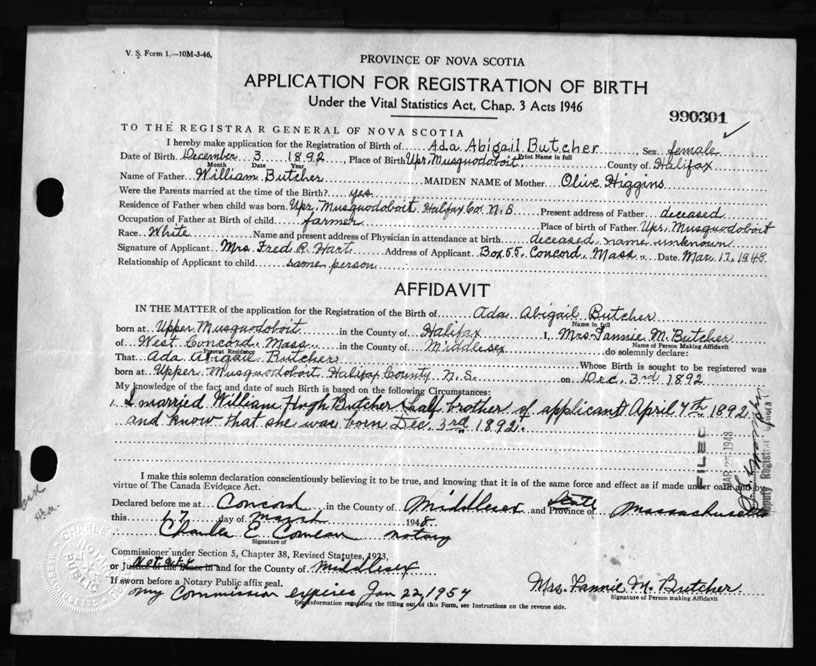 V. S. Form 1.—10M-3-46.
PROVINCE OF NOVA SCOTIA
APPLICATION FOR REGISTRATION OF BIRTH
Under the Vital Statistics Act, Chap. 3 Acts 1946
990301
TO THE REGISTRAR GENERAL OF NOVA SCOTIA
I hereby make application for the Registration of Birth of Ada Abigail Butcher Sex female
Print Name in full
Date of Birth December 3 1892 Place of Birth Upr. Musquodoboit County of Halifax
Month Date Year
Name of Father William Butcher MAIDEN NAME of Mother Olive Higgins
Were the Parents married at the time of the Birth? yes
Residence of Father when child was born Upr. Musquodoboit Halifax Co. N. S Present address of Father deceased
Occupation of Father at Birth of child farmer Place of birth of Father Upr. Musquodoboit
Race White Name and present address of Physician in attendance at birth deceased name unknown
Signature of Applicant Mrs. Fred R. Hart Address of Applicant Box 55, Concord, Mass., Date Mar. 17, 1948
Relationship of Applicant to child same person
AFFIDAVIT
IN THE MATTER of the application for the Registration of the Birth of Ada Abigail Butcher
Name in full
born at Upper Musquodoboit in the County of Halifax I, Mrs. Fannie M. Butcher
Name of Person Making Affidavit
of West Concord, Mass. in the County of Middlesex do solemnly declare:
Present Residence
That Ada Abigail Butcher Whose Birth is sought to be registered was
born at Upper Musquodoboit, Halifax County N. S. on Dec. 3rd 1892
My knowledge of the fact and date of such Birth is based on the following Circumstances:
I married William Hugh Butcher (half brother of applicant) April 7th 1892
and know that she was born Dec. 3rd 1892.
FILED
1948
County Registrar
I make this solemn declaration conscientiously believing it to be true, and knowing that it is of the same force and effect as if made under oath and by
virtue of The Canada Evidence Act.
Declared before me at Concord in the County of Middlesex and State Province of Massachusetts
this 17 day of March 1948.
Charles E. Comeau notary
Signature of
Commissioner under Section 5, Chapter 38, Revised Statutes, 1923,
or Justice of the Peace in and for the County of Middlesex
If sworn before a Notary Public affix seal.
My Commission expires Jan 22, 1954
Mrs. Fannie M. Butcher
Signature of Person making Affidavit
For information regarding the filling out of this Form, see Instructions on the reverse side.